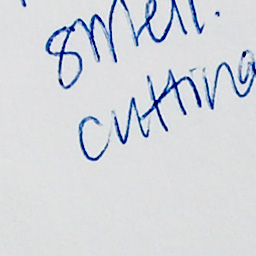 smell.
cutting